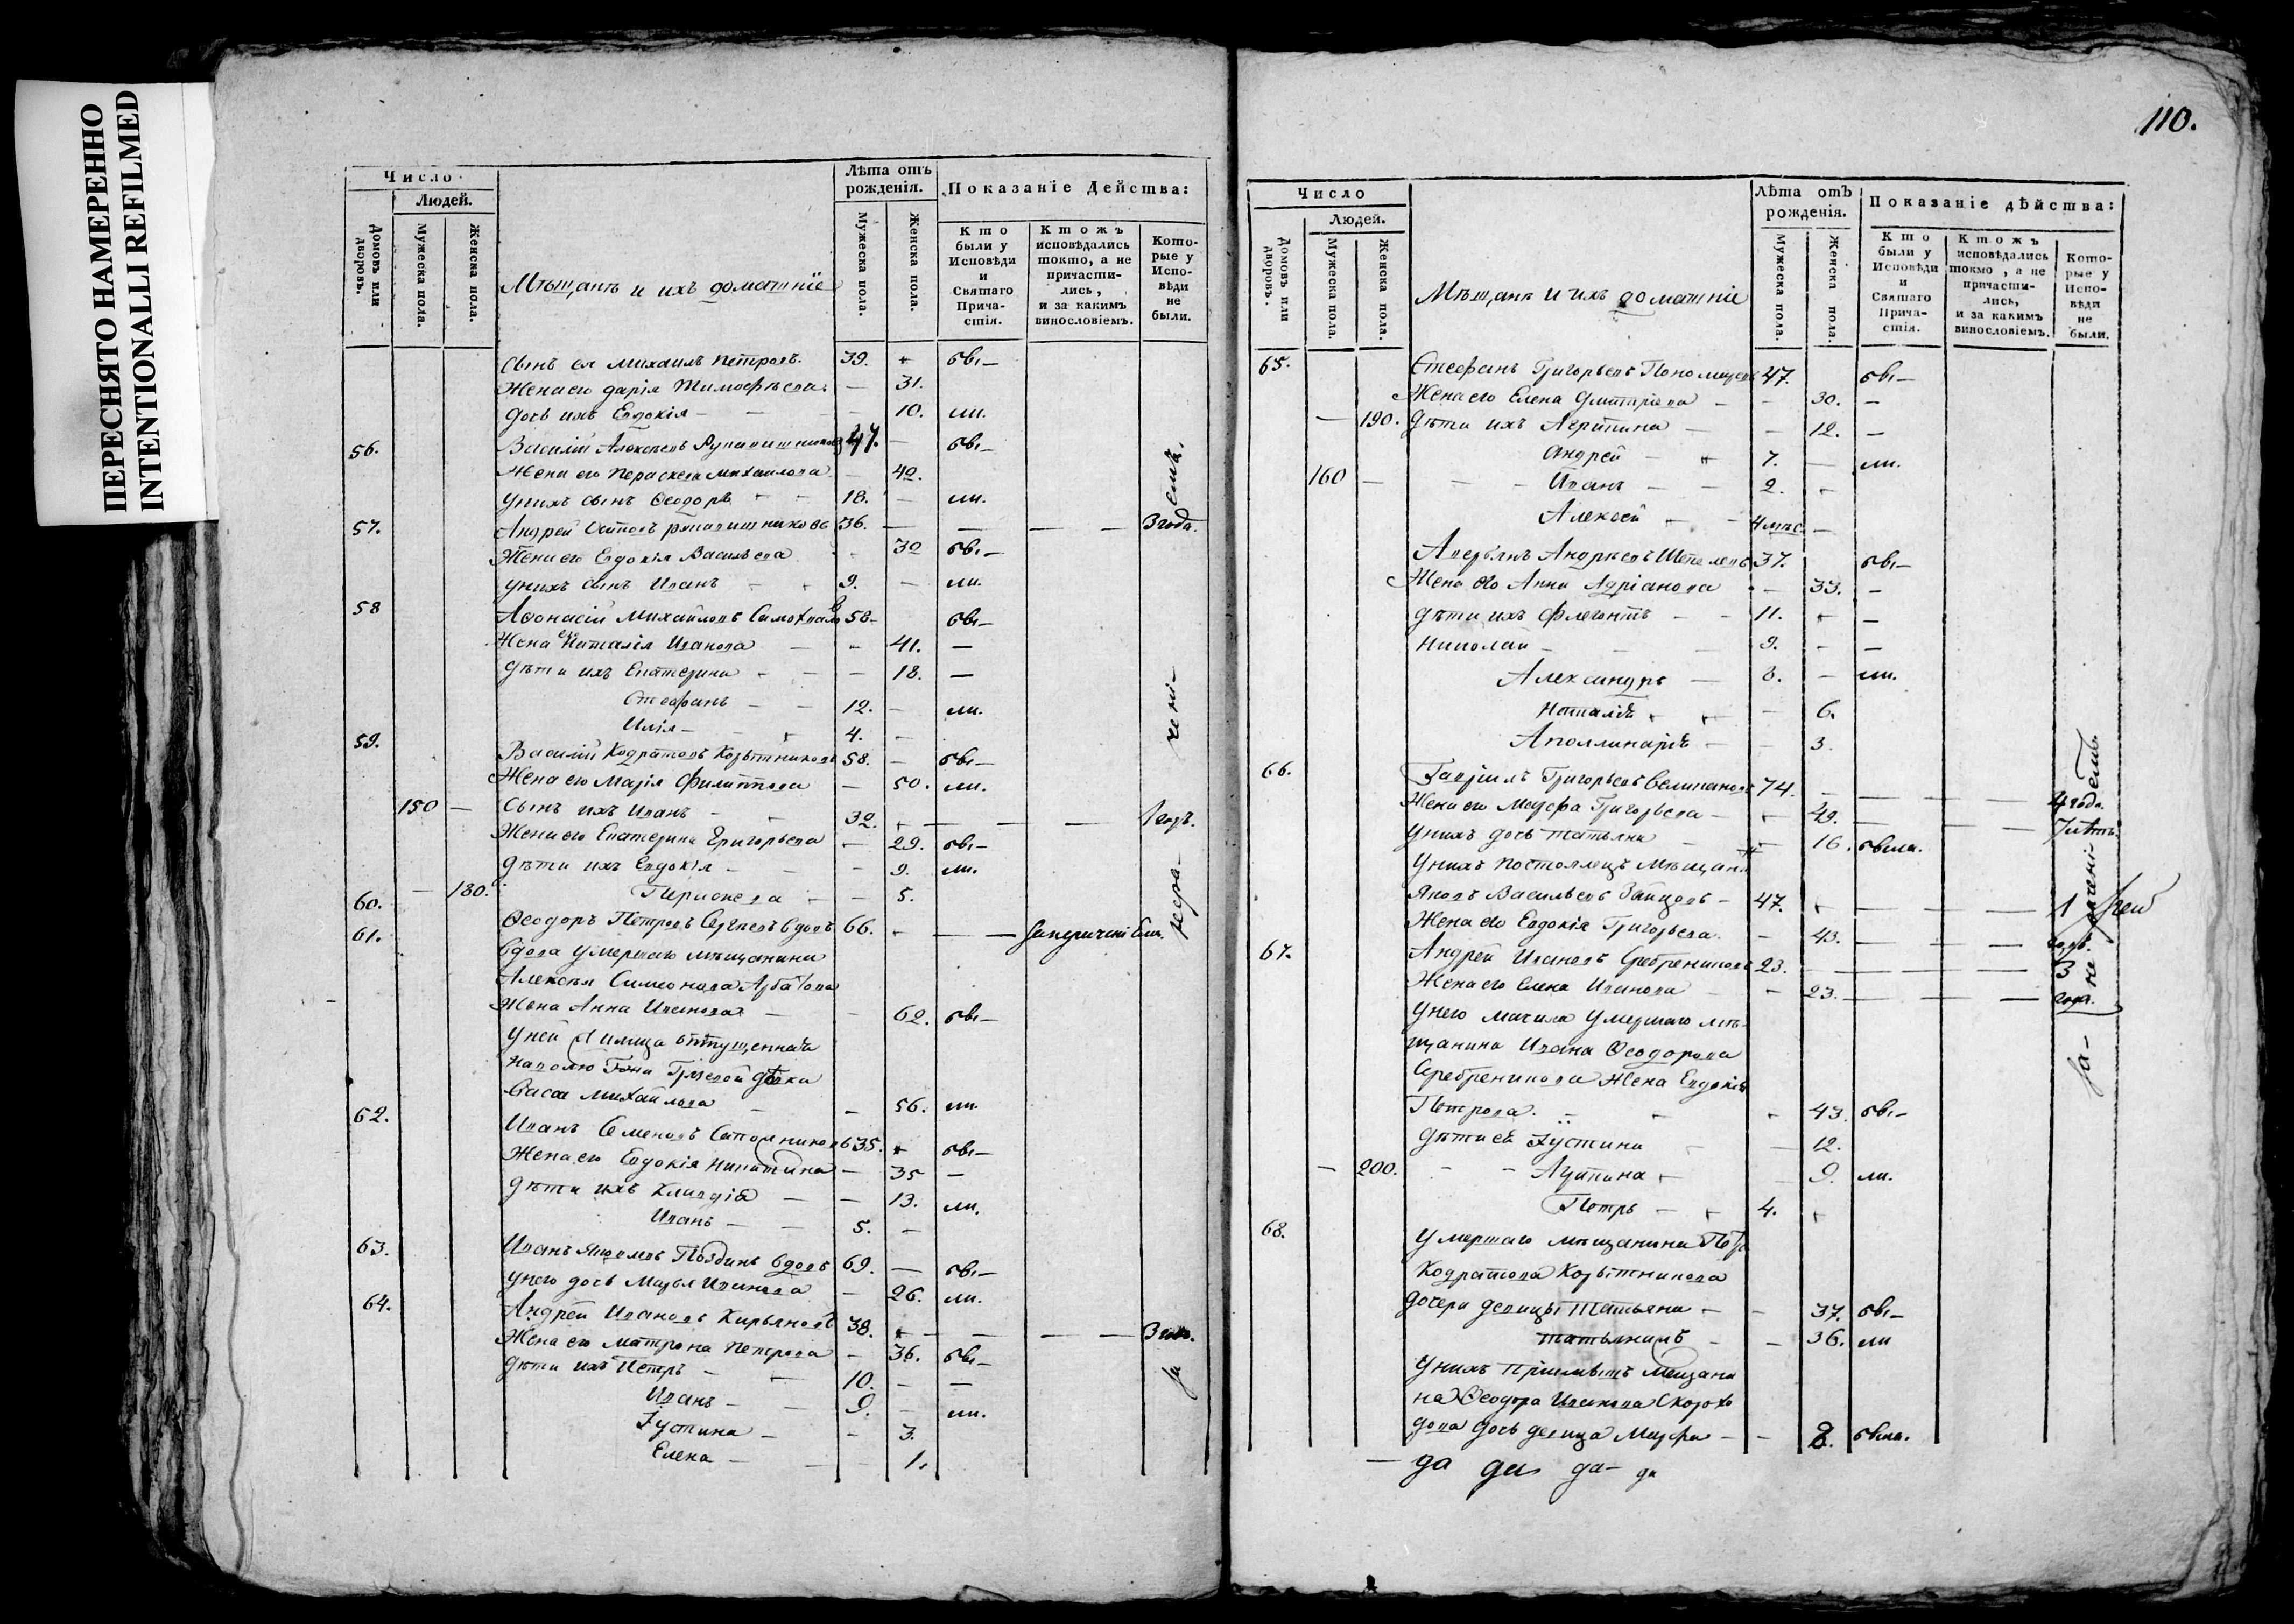 ПЕРЕСНЯТО НАМЕРЕННО
INTENTIONALLI REFILMED
Число
Людей.
Домовъ или дворовъ.
Мужеска пола.
Женска пола.
Мѣщанъ и ихъ домашніе
Лѣта отъ рожденія.
Мужеска пола.
Женска пола.
Показаніе Действа:
Кто были у Исповѣди и Святаго Прича-стія.
Ктожъ исповѣдались токто, а не причасти-лись, и за какимъ винословіемъ.
Кото-рые у Испо-вѣди не были.
Сынъ ея Михаилъ Петровъ. 39. бы—
Жена его Дарія Тимофѣева — 31.
Дочь ихъ Евдокія — 10. ли.
56. Василій Алексѣевъ 47. — бы—
Жена его Параскева Михаилова — 42.
У нихъ сынъ Ѳеодоръ 18. — ли.
57. Андрей Осиповъ 36. — — — 3 года.
Жена его Евдокія Васильева 32 бы—
У нихъ сынъ Иванъ 9. — ли.
58 Аѳонасій Михайловъ 58— бы—
Жена его Наталія Иванова — 41. —
Дѣти ихъ Екатерина — 18. —
Стефанъ — 12. — ли.
Илія — 4. —
59. Василій Кодратовъ Копытниковъ 58. — бы—
Жена его Марія Филиппова — 50. ли.
150 — Сынъ ихъ Иванъ 32. — — — 1 годъ.
Жена его Екатерина Григорьева — 29. бы—
Дѣти ихъ Евдокія — 9. ли.
— 180. Параскева — 5.
60. Ѳеодоръ Петровъ Сергѣевъ вдовъ 66. — —
61. Вдова умершаго мѣщанина
Алексѣя Симеонова
Жена Анна Иванова — 62. бы—
У ней отпущенная
на волю девка
Васса Михайлова — 56. ли.
62. Иванъ Семеновъ Сапожниковъ 35. бы—
Жена его Евдокія Никитина — 35 —
Дѣти ихъ Клавдія — 13. ли.
Иванъ — 5. —
63. Иванъ Яковлевъ вдовъ 69. — бы—
У него дочь Марья Иванова — 26. ли.
64. Андрей Ивановъ Кирьяновъ 38. — — — 3
Жена его Матрона Петрова — 36. бы—
Дѣти ихъ Петръ — 10. — —
Иванъ — 9. — ли.
Іустина — 3.
Елена — 1.
110.
Число
Людей.
Домовъ или дворовъ.
Мужеска пола.
Женска пола.
Мѣщанъ и ихъ домашніе
Лѣта отъ рожденія.
Мужеска пола.
Женска пола.
Показаніе дѣйства:
Кто были у Исповѣди и Святаго Прича-стія.
Ктожъ исповѣдались токмо, а не причасти-лись, и за какимъ винословіемъ.
Кото-рые у Испо-вѣди не были.
65. Стефанъ Григорьевъ 47. бы—
Жена его Елена Дмитріева — 30. —
— 190. Дѣти ихъ Агрипина — 12. —
Андрей — 7. — ли.
160 — Иванъ — 2.
Алексѣй — 4 мѣс. —
Аверьянъ Андреевъ Шепелевъ 37. бы—
Жена его Анна Адріанова — 33. —
Дѣти ихъ Флегонтъ — 11. —
Николай — 9. — —
Александръ — 8. — ли.
Наталія — 6.
Аполлинарія — 3.
66. Гавріилъ Григорьевъ Селивановъ 74. — — — 4 года.
Жена его Марфа Григорьева — 49. — — 7 лѣтъ.
У нихъ дочь Татьяна — 16. были.
У нихъ постоялецъ мѣщан.
Яковъ Васильевъ Зайцовъ — 47. — — — 1
Жена его Евдокія Григорьева. — 43. — — — годъ.
67. Андрей Ивановъ Сребрениковъ 23. — — — 3
Жена его Елена Иванова — 23. — — — года.
У него мачиха умершаго мѣ-
щанина Ивана Ѳеодорова
Серебреникова жена Евдокія
Петрова. 43. бы—
Дѣти ея Іустина — 12.
— 200. — Агрипина 9. ли.
Петръ — 4.
68. Умершаго мѣщанина Петра
Кодратова Копытникова
дочери девицы Татьяна — 37. бы—
36. ли
У нихъ пріимышъ мещани
на Ѳеодора Иванова Скорохо
дова дочь девица Марфа — 8. были.
— да да да— да